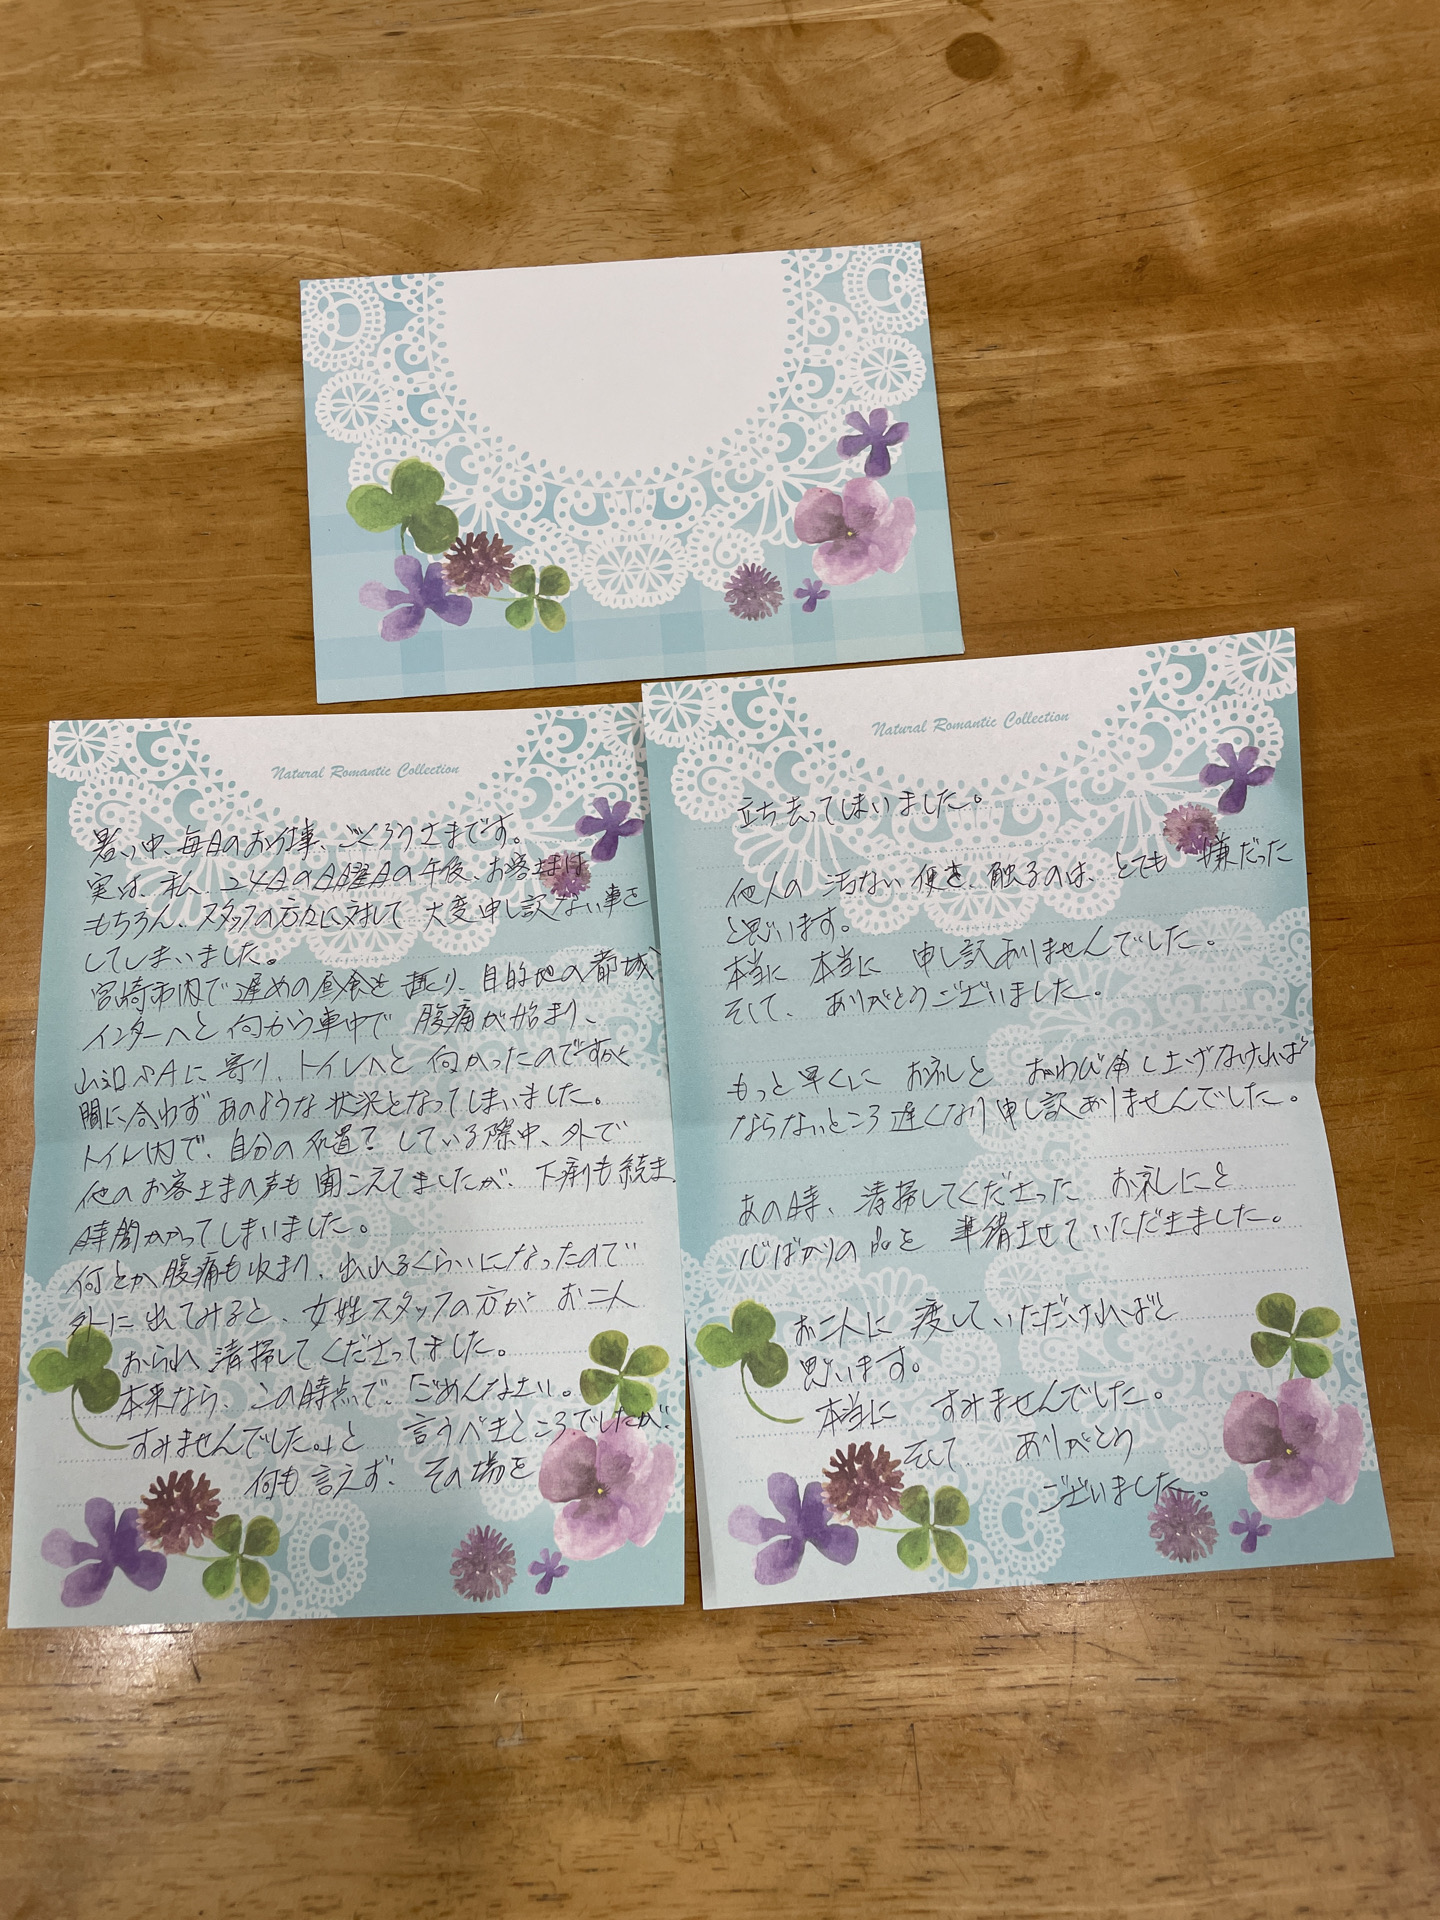 Natural Romantic Collection
暑い中、毎日のお仕事、ごくろうさまです。
実は、私 24日の日曜日の午後、お客さまは
もちろん、スタッフの方々に対して 大変申し訳ない事を
してしまいました。
宮崎市内で遅めの昼食を 摂り、目的地の都城
インターへと 向かう車中で 腹痛が始まり、
山之口PAに 寄り、トイレへと 向かったのですが
間に合わず あのような 状況となってしまいました。
トイレ内で、自分の処置を している際中、外で
他のお客さまの声も 聞こえてましたが、下痢も続き、
時間かかってしまいました。
何とか腹痛も収まり、出れるくらいになったので
外に 出てみると、女性スタッフの方が お二人
おられ 清掃してくださってました。
本来なら、この時点で、「ごめんなさい。
すみませんでした。」と 言うべきところでしたが、
何も言えず、その場を
Natural Romantic Collection
立ち去ってしまいました。
他人の 汚ない 便を、触るのは、とても 嫌だった
と思います。
本当に 本当に 申し訳ありませんでした。
そして、ありがとうございました。
もっと早くに お礼と おわび申し上げなければ
ならないところ 遅くなり 申し訳ありませんでした。
あの時、清掃してくださった お礼にと
心ばかりの 品を 準備させていただきました。
お二人に 渡していただければと
思います。
本当に すみませんでした。
そして ありがとう
ございました。